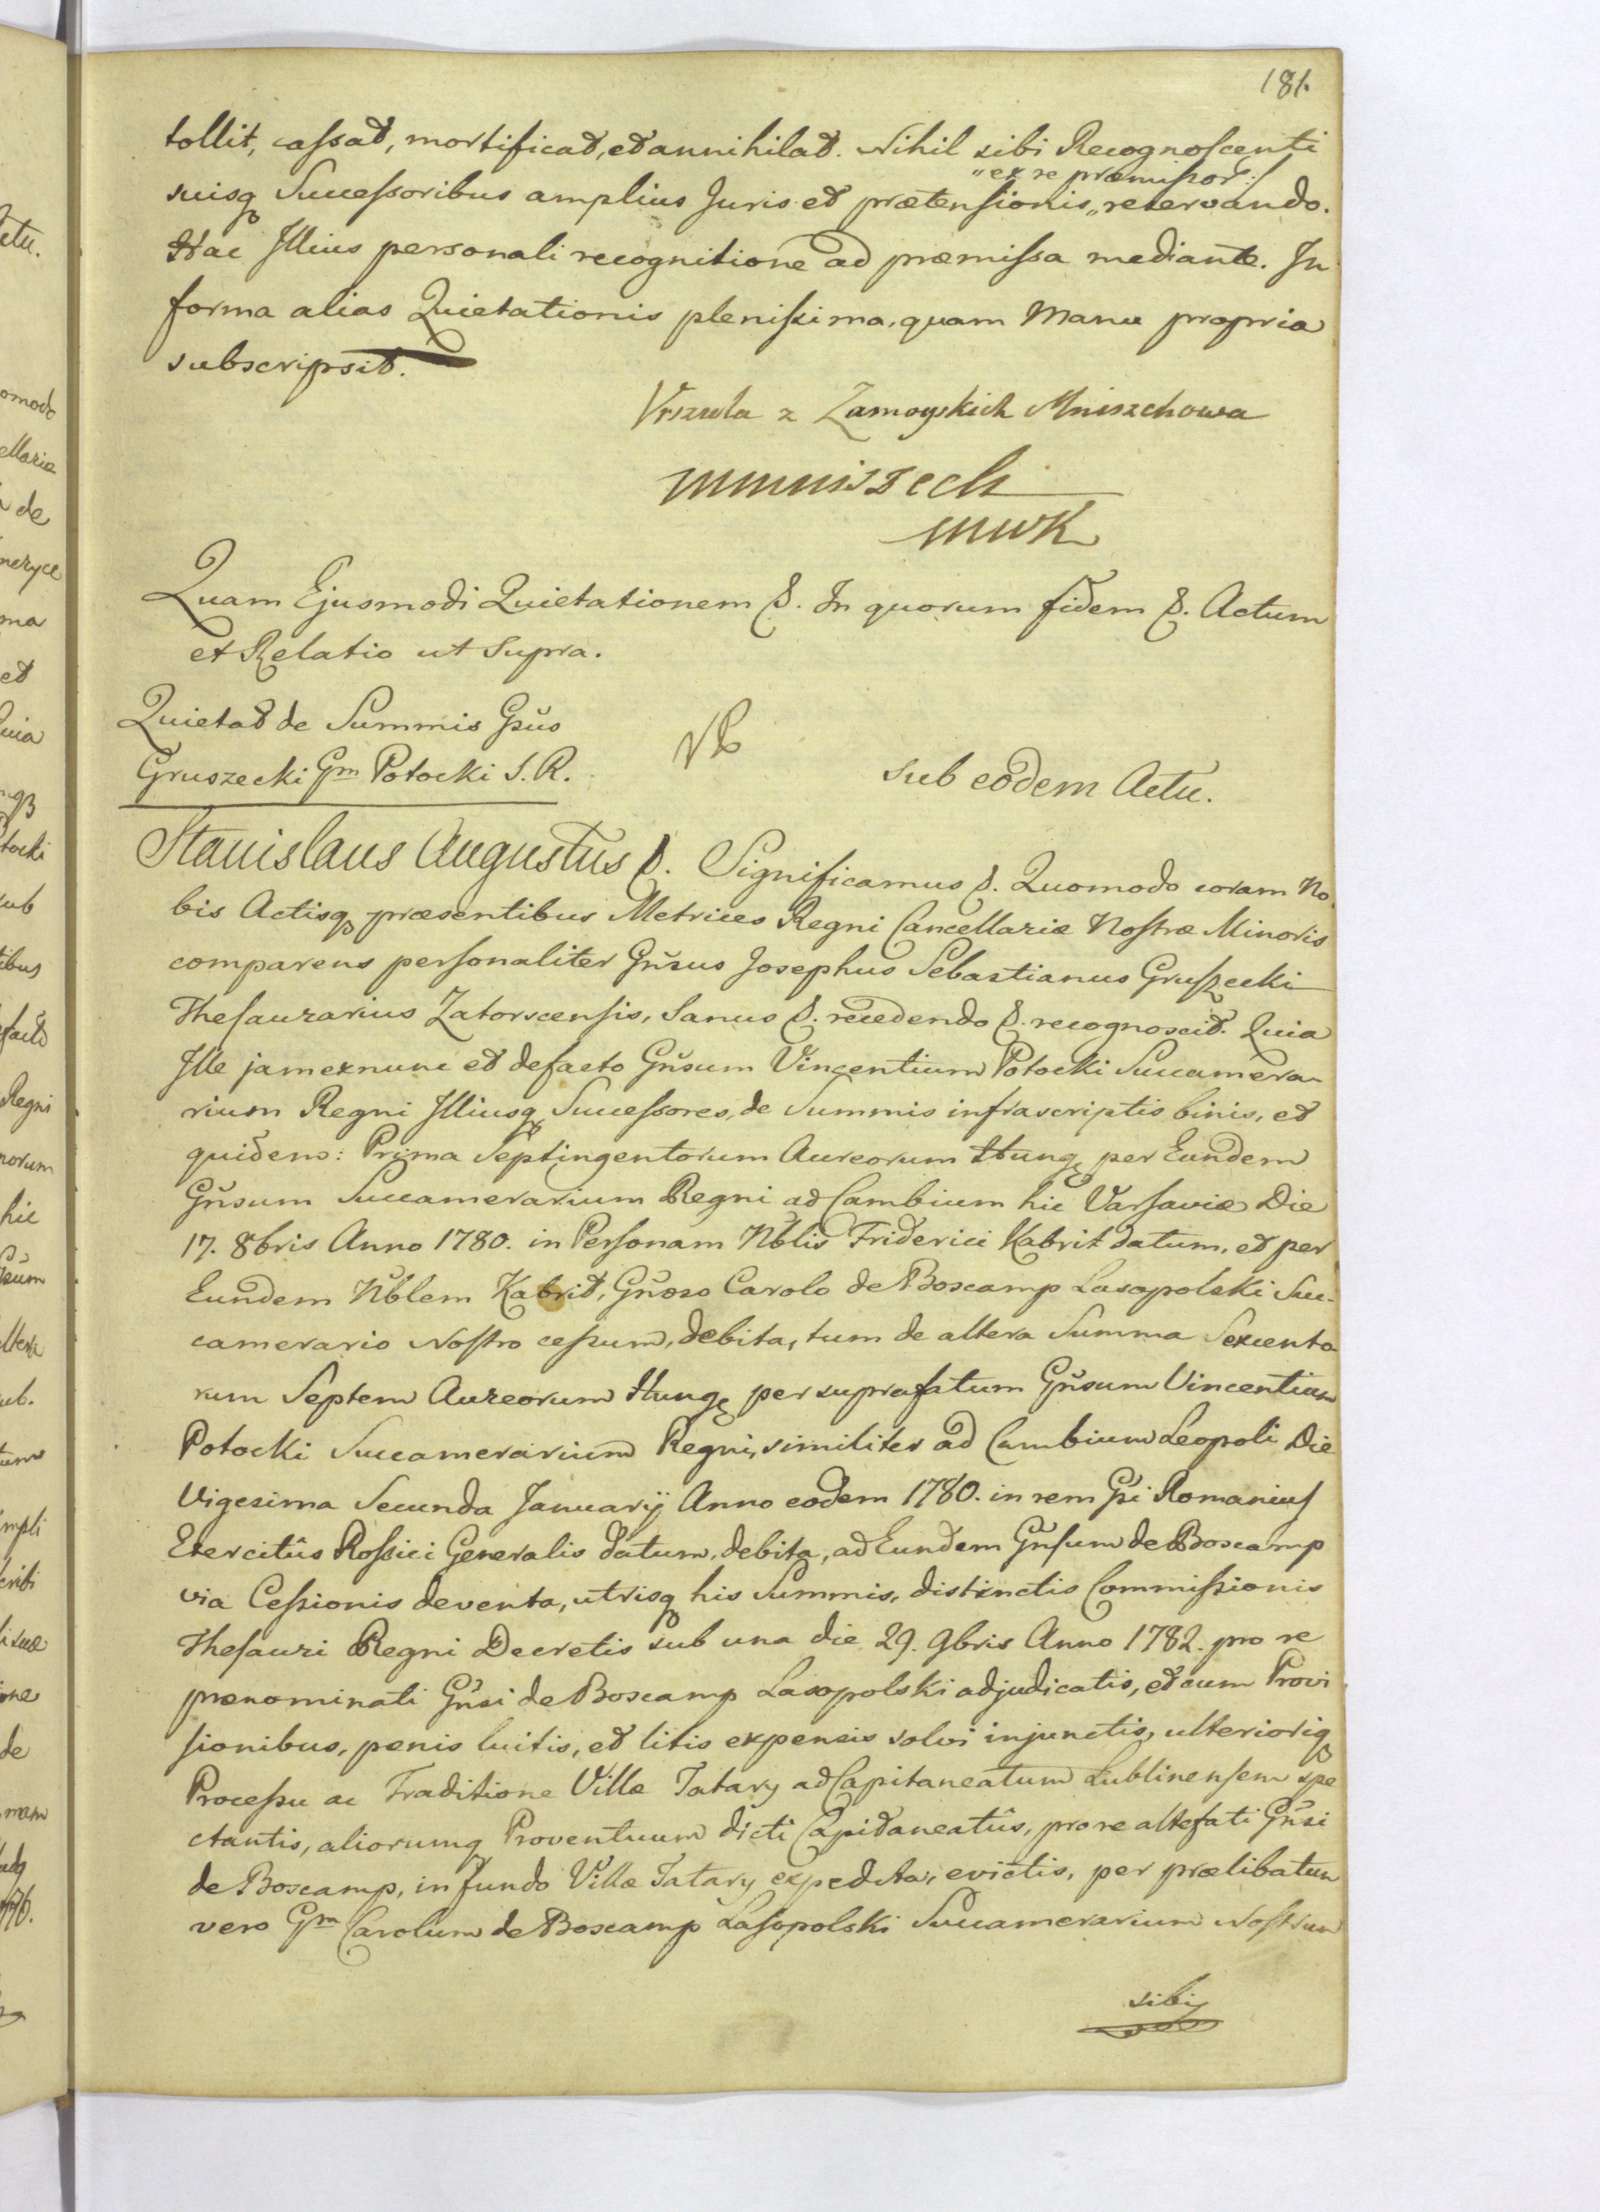 181.
tollit, cassat, mortificat, et annihilat. Nihil sibi Recognoscenti
„ex re præmissor:/
suisq Successoribus amplius Juris et prætensionis„ reservando.
Hac Illius personali recognitione ad præmissa mediante. In
forma alias Quietationis plenissima, quam Manu propria
subscripsit.
Urszula z Zamoyskich Mniszchowa
mmniszech
mwK
Quam Ejusmodi Quietationem &. In quorum fidem &. Actum
et Relatio ut supra.
Quietat de Summis Gsus
Gruszecki Gm Potocki S. R.
sub eodem Actu.
Stanislaus Augustus &. Significamus &. Quomodo coram No
bis Actisq præsentibus Metrices Regni Cancellariæ Nostræ Minoris
comparens personaliter Gnsus Josephus Sebastianus Gruszecki
Thesaurarius Zatorscensis, Sanus &. recedendo &. recognoscit. Quia
Ille jamexnunc et defacto Gnsum Vincentium Potocki Succamera-
rium Regni Illiusq Successores, de Summis infrascriptis binis, et
quidem: Prima Septingentorum Aureorum Hung per Eundem
Gnsum Succamerarium Regni ad Cambium hic Varsaviæ Die
17. 8bris Anno 1780. in Personam Nblis Friderici Kabrit datum, et per
Eundem Nblem Kabrit, Gnoso Carolo de Boscamp Lasopolski Suc-
camerario Nostro cessum, debita, tum de altera Summa Sexcento
rum Septem Aureorum Hung per suprafatum Gnsum Vincentium
Potocki Succamerarium Regni, similiter ad Cambium Leopoli Die
Vigesima Secunda Januarij Anno eodem 1780. in rem Gsi Romanius
Exercitûs Rossici Generalis datum, debita, ad Eundem Gnsum de Boscamp
via Cessionis deventa, utrisq his Summis, distinctis Commissionis
Thesauri Regni Decretis sub una die 29. 9bris Anno 1782. pro re
prænominati Gnsi de Boscamp Lasopolski adjudicatis, et cum Provi
sionibus, pænis luitis, et litis expensis solvi injunctis, ulterioriq
Processu ac Traditione Villæ Tatary ad Capitaneatum Lublinensem spe
ctantis, aliorumq Proventuum dicti Capitaneatûs, pro re altefati Gnsi
de Boscamp, in fundo Villæ Tatary expedita, evictis, per prælibatum
vero Gm Carolum de Boscamp Lasopolski Succamerarium Nostrum
sibi